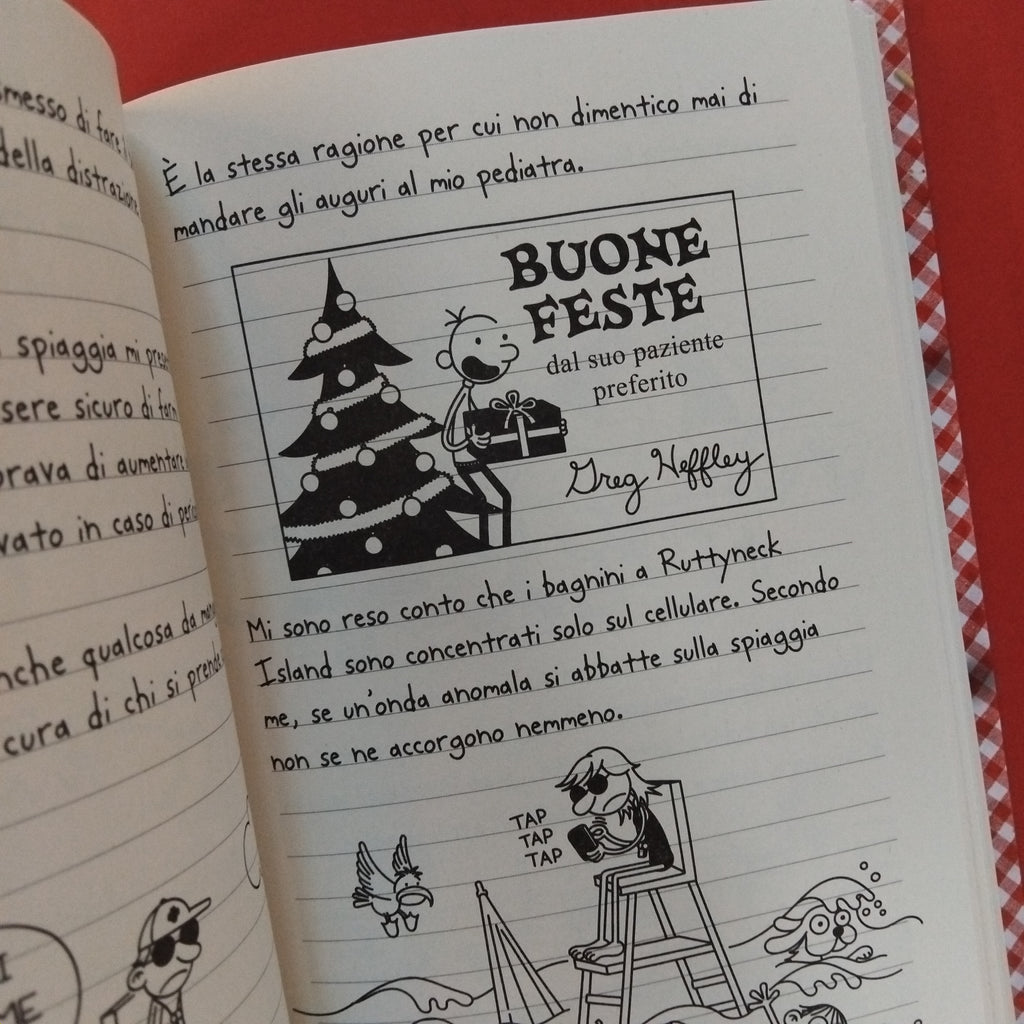 messo di fare
della distrazione
spiaggia mi
sere sicuro di
di aumentare
vato in caso di
nche qualcosa da
cura di chi si prende
ME
È la stessa ragione per cui non dimentico mai di
mandare gli auguri al mio pediatra.
BUONE
FESTE
dal suo paziente
preferito
Greg Heffley
Mi sono reso conto che i bagnini a Ruttyneck
Island sono concentrati solo sul cellulare. Secondo
me, se un'onda anomala si abbatte sulla spiaggia
non se ne accorgono nemmeno.
TAP
TAP
TAP